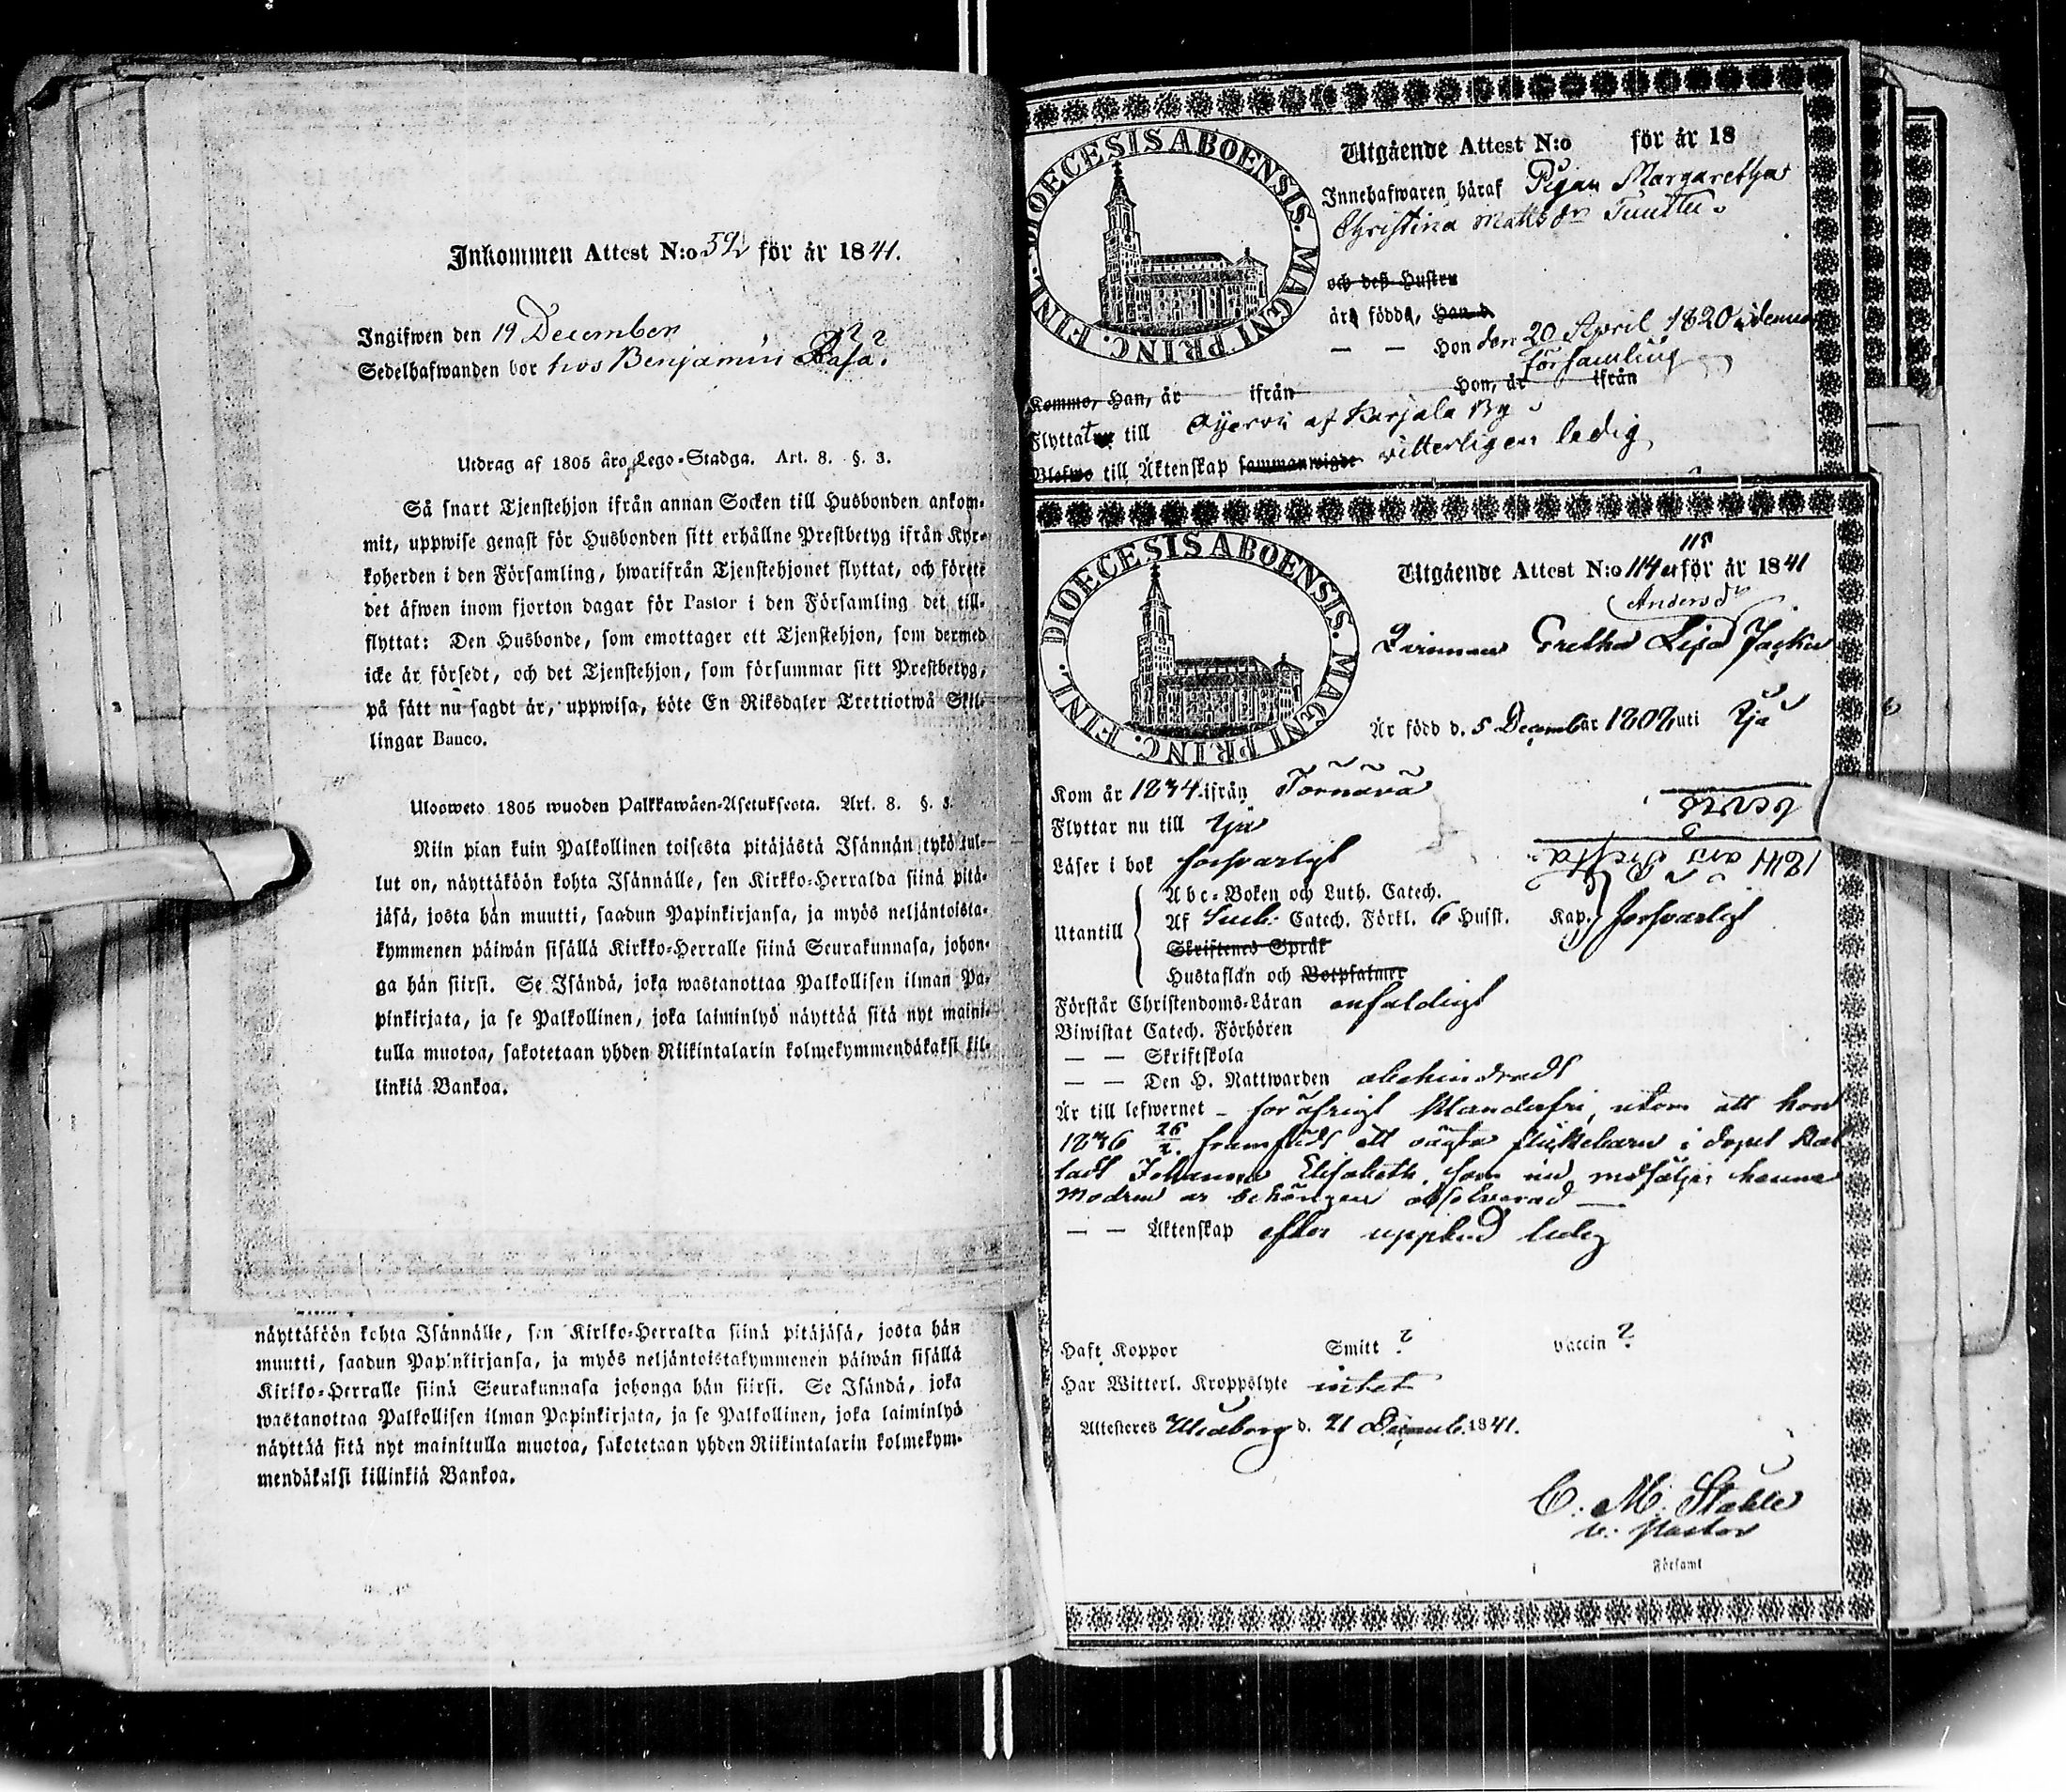 Inkommen Attest N:o 592 för år 1841.
Ingifwen den 19 December
Sedelhafwanden bor hos Benjamin Rasa.
Utdrag af 1805 års Lego-Stadga. Art. 8. §. 3.
Så snart Tjenstehjon ifrån annan Socken till Husbonden ankom-
mit, uppwise genast för Husbonden sitt erhållne Prestbetyg ifrån Kyr-
koherden i den Församling, hwarifrån Tjenstehjonet flyttat, och förete
det äfwen inom fjorton dagar för Pastor i den Församling det till-
flyttat: Den Husbonde, som emottager ett Tjenstehjon, som dermed
icke är försedt, och det Tjenstehjon, som försummar sitt Prestbetyg,
på sätt nu sagdt är, uppwisa, böte En Riksdaler Trettiotwå Skil-
lingar Banco.
Uloosweto 1805 wuoden Palkkawäen-Asetuksesta. Art. 8. §. 3.
Niin pian kuin Palkollinen toisesta pitäjästä Isännän tykö tul-
lut on, näyttäköön kohta Isännälle, sen Kirkko-Herralda siinä pitä-
jäsä, josta hän muutti, saadun Papinkirjansa, ja myös neljäntoista-
kymmenen päiwän sisällä Kirkko-Herralle siinä Seurakunnasa, johon-
ga hän siirsi. Se Isändä, joka wastanottaa Palkollisen ilman Pa-
pinkirjata, ja se Palkollinen, joka laiminlyö näyttää sitä nyt maini-
tulla muotoa, sakotetaan yhden Riikintalarin kolmekymmendäkaksi kil-
linkiä Bankoa.
näyttäköön kohta Isännälle, sen Kirkko-Herralda siinä pitäjäsä, josta hän
muutti, saadun Papinkirjansa, ja myös neljäntoistakymmenen päiwän sisällä
Kirkko-Herralle siinä Seurakunnasa johonga hän siirsi. Se Isändä, joka
wastanottaa Palkollisen ilman Papinkirjata, ja se Palkollinen, joka laiminlyö
näyttää sitä nyt mainitulla muotoa, sakotetaan yhden Riikintalarin kolmekym-
mendäkaksi killinkiä Bankoa.
DIOECESIS ABOENSIS. MAGNI PRINC. FINL.
Utgående Attest N:o för år 18
Innehafwaren häraf Pigan Margaretha
Christina Matsdr Tuuttu
och dess Hustru
äro födde, Han d.
— — Hon den 20 April 1820 i denna
församling
Kommo, Han, år ifrån Hon, år ifrån
Flyttat till af Karjala By
Blefwo till Äktenskap sammanwigde witterligen ledig
DIOECESIS ABOENSIS. MAGNI PRINC. FINL.
115
Utgående Attest N:o 114 et för år 1841
Andersdr
Qwinnan Gretha Lisa
Är född d. 5 Decemb år 1802 uti Ijå
Kom år 1834 ifrån Törnävä
Flyttar nu till Ijå
Läser i bok försvarligt
Utantill
Abc-Boken och Luth. Catech.
Af Sveb. Catech. Förkl. 6 Hufst. Kap. försvarligt
Skriftenes Språk
Hustaflan och Botpsalmer
Förstår Christendoms-Läran enfaldigt
Biwistat Catech. Förhören
— — Skriftskola
— — Den H. Nattwarden obehindradt
Är till lefwernet – för öfrigt klanderfri, utom att hon
1836 26/2 framfödt ett oägta flickebarn i dopet kal
ladt Johanna Elisabeth, som nu medföljer henne
Modren är behörigen absolverad —
— — Äktenskap efter uppbud ledig
Haft Koppor Smitt ? vaccin ?
Har Witterl. Kroppslyte intet
Attesteres Uleåborg d. 21 Decemb. 1841.
C. M. Ståhle
v. Pastor
Församl